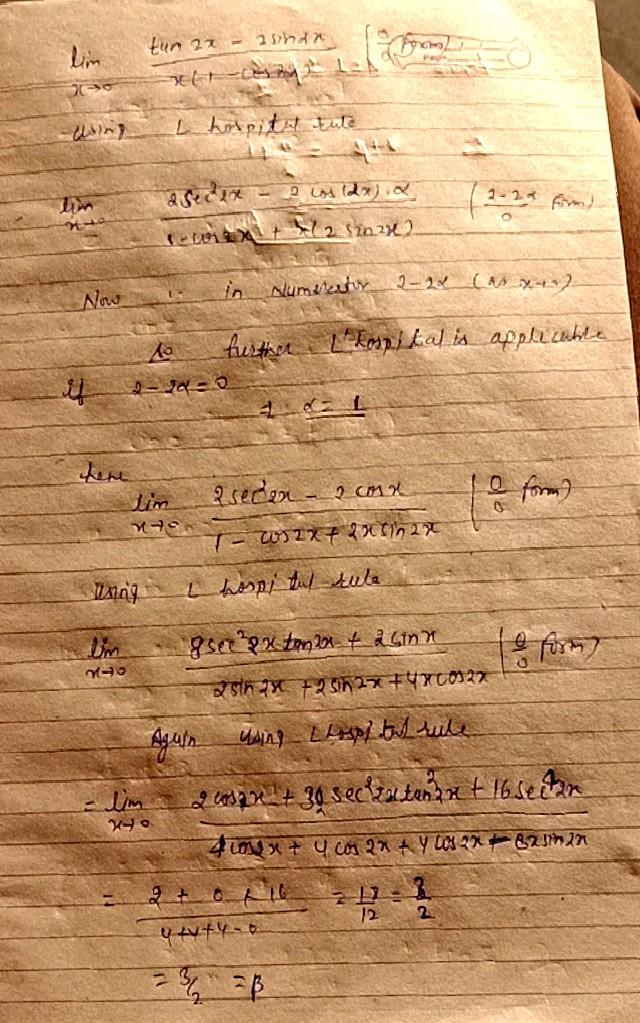 lim x→0 tan 2x - 2 sin αx / x(1 - cos 2x) (0/0 form)
using L hospital rule
lim x→0 2 sec²2x - 2 cos(αx).α / 1 - cos 2x + x(2 sin 2x) (2-2α/0 form)
Now in Numerator 2-2α (as x→0)
to further L'hospital is applicable
if 2-2α = 0
α = 1
here
lim x→0 2 sec²2x - 2 cos x / 1 - cos2x + 2x sin 2x (0/0 form)
using L hospital rule
lim x→0 8 sec²2x tan 2x + 2 sin x / 2 sin 2x + 2 sin 2x + 4x cos 2x (0/0 form)
Again using L hospital rule
= lim x→0 2 cos x + 32 sec²2x tan²2x + 16 sec⁴2x / 4 cos 2x + 4 cos 2x + 4 cos 2x - 8x sin 2x
= 2 + 0 + 16 / 4+4+4-0 = 18/12 = 3/2
= 3/2 = β